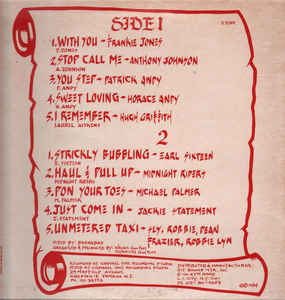 SIDE 1
1. WITH YOU - FRANKIE JONES
F. JONES
2. STOP CALL ME - ANTHONY JOHNSON
A. JOHNSON
3. YOU STEP - PATRICK ANDY
P. ANDY
4. SWEET LOVING - HORACE ANDY
H. ANDY
5. I REMEMBER - HUGH GRIFFITH
LAUREL AITKENS
2
1. STRICKLY BUBBLING - EARL SIXTEEN
2. HAUL & PULL UP - MIDNIGHT RIDERS
MIDNIGHT RIDERS
3. PON YOUR TOES - MICHAEL PALMER
M. PALMER
4. JUST COME IN - JACKIE STATEMENT
J. STATEMENT
5. UNMETERED TAXI - SLY, ROBBIE, DEAN
FRAZIER, ROBBIE LYN